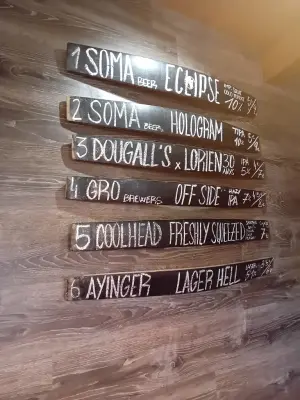 1 SOMA BEER ECLIPSE 10%
2 SOMA BEER HOLOGRAM TIPA 10%
3 DOUGALL'S x LORIEN 30 IPA 5%
4 GRO BREWERS OFF SIDE HAZY IPA 7%
5 COOLHEAD FRESHLY SQUEEZED
6 AYINGER LAGER HELL